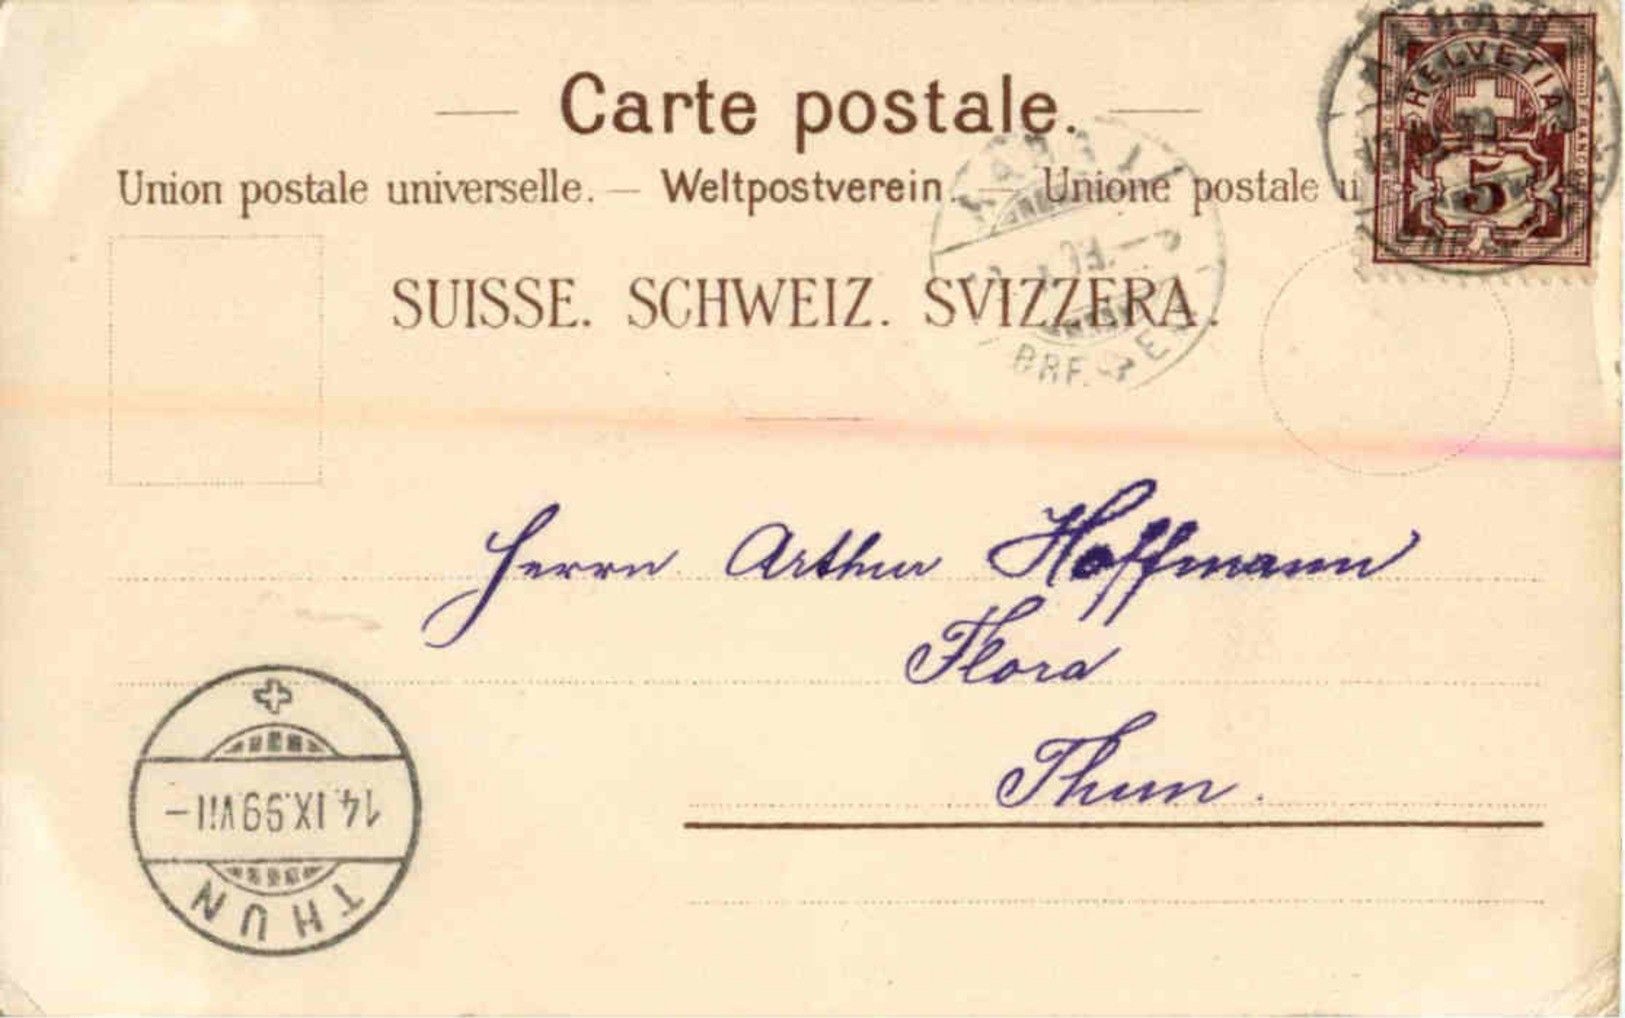 Carte postale.
Union postale universelle. — Weltpostverein. — Unione postale u
SUISSE. SCHWEIZ. SVIZZERA.
HELVETIA
FRANCO
5
BRF.
Herrn Arthur Hoffmann
Flora
Thun.
14. IX. 99 VII –
THUN